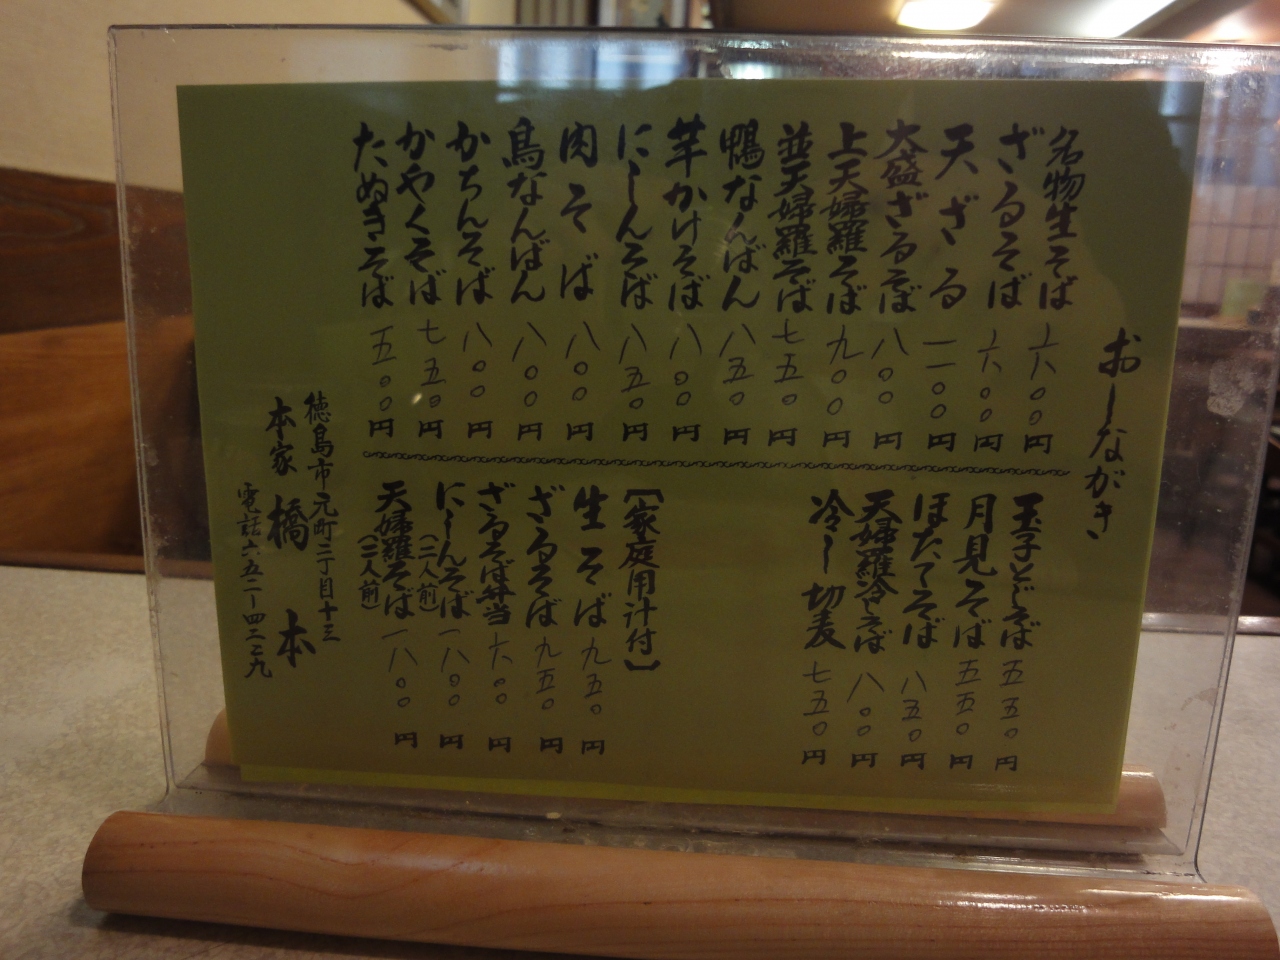 おしながき
名物生そば 六〇〇円
ざるそば 六〇〇円
天ざる 一一〇〇円
大盛ざるそば 八〇〇円
上天婦羅そば 九〇〇円
並天婦羅そば 七五〇円
鴨なんばん 八五〇円
芋かけそば 八〇〇円
にしんそば 八五〇円
肉そば 八〇〇円
鳥なんばん 八〇〇円
かちんそば 八〇〇円
かやくそば 七五〇円
たぬきそば 五〇〇円
玉子とじそば 五五〇円
月見そば 五五〇円
ほたてそば 八五〇円
天婦羅冷しそば 八〇〇円
冷し切麦 七五〇円
【家庭用汁付】
生そば 九五〇円
ざるそば 九五〇円
ざるそば弁当 六〇〇円
にしんそば(二人前) 一八〇〇円
天婦羅そば(二人前) 一八〇〇円
徳島市元町二丁目十三
本家 橋本
電話六五二ー四二二九